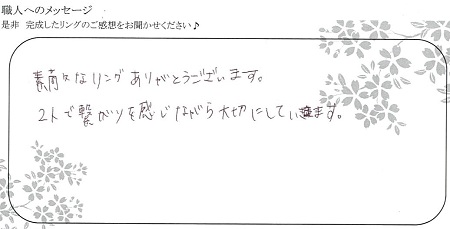 職人へのメッセージ
是非 完成したリングのご感想をお聞かせください♪
素敵なリングありがとうございます。
2人で繋がりを感じながら大切にしていきます。